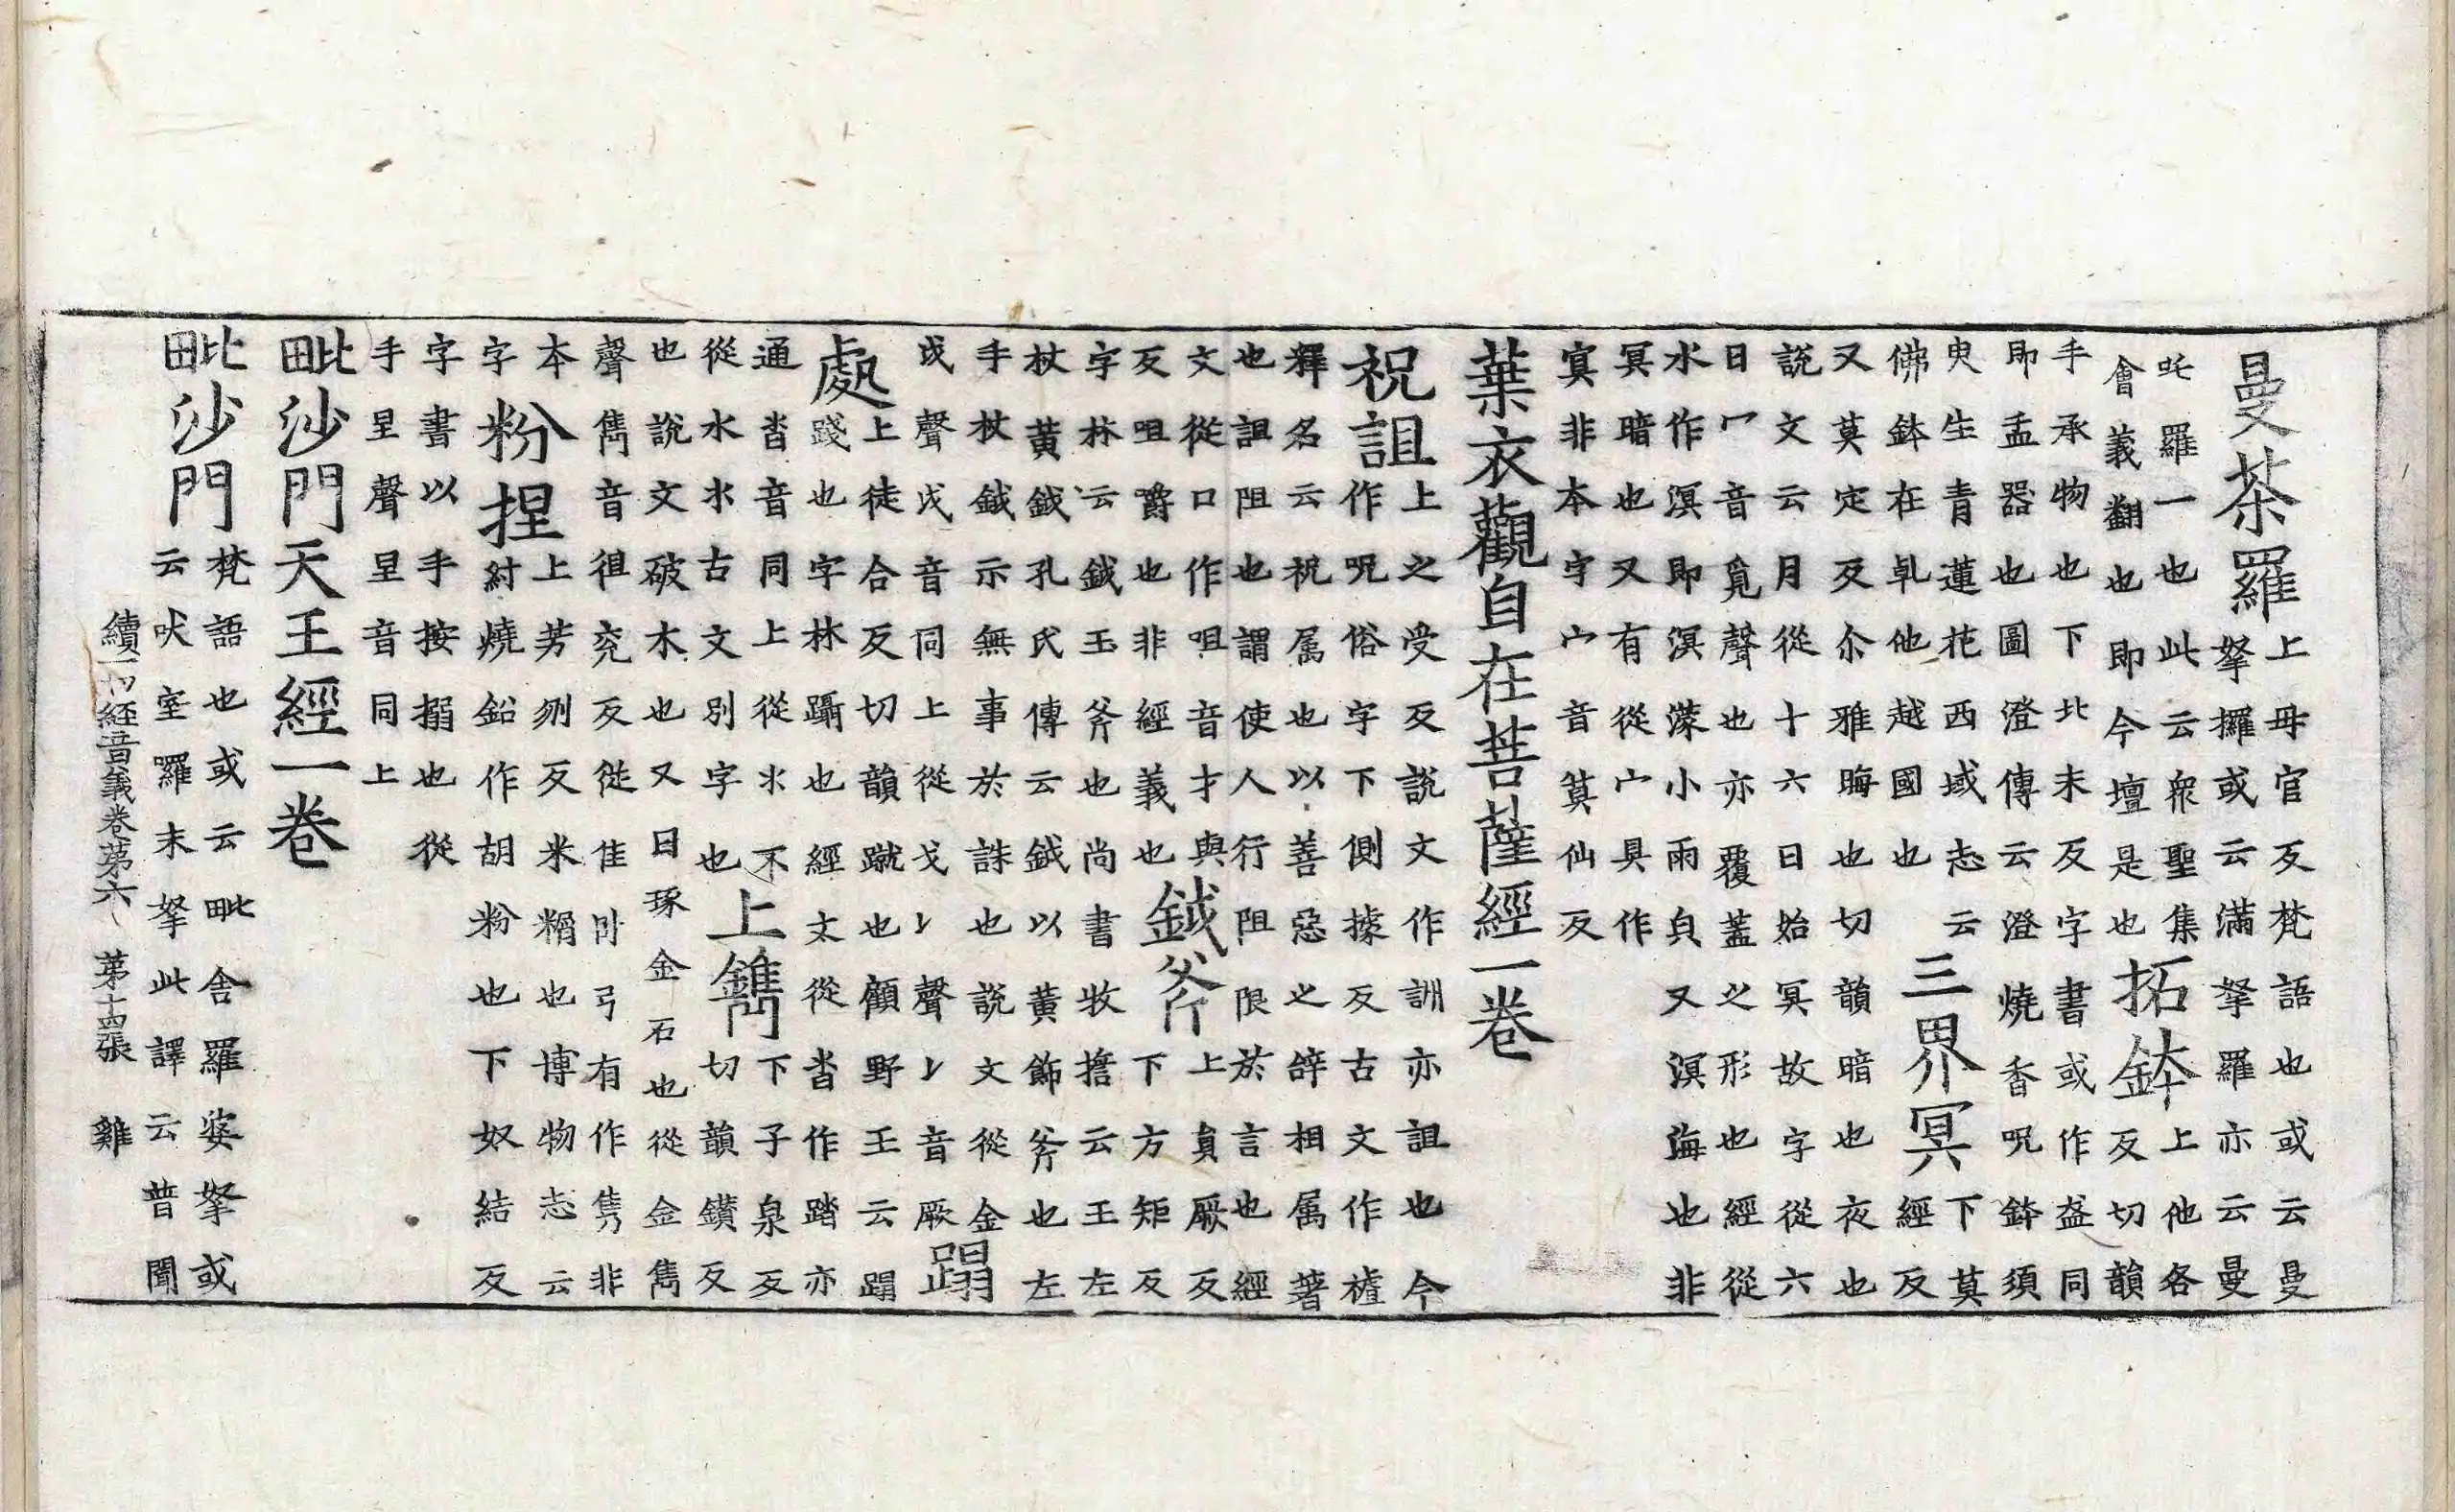 曼荼羅上毋官反梵語也或云曼
拏攞或云滿拏羅亦云曼
吒羅一也此云衆聖集
會義翻也即今壇是也拓鉢上他各
反切韻
手承物也下北末反字書或作盋同
即盂器也圖澄傳云澄燒香呪鉢須
臾生青蓮花西域志云
佛鉢在乹他越國也三界冥下莫
經反
又莫定反尒雅晦也切韻暗也夜也
說文云月從十六日始冥故字從六
日冖音覓聲也亦覆蓋之形也經從
水作溟即溟濛小雨皃又溟海也非
冥暗也又有從宀具作
寘非本字宀音莫仙反
葉衣觀自在菩薩經一卷
祝詛上之受反說文作訓亦詛也今
作呪俗字下側據反古文作樝
釋名云祝属也以善惡之辝相属著
也詛阻也謂使人行阻限於言也經
文從口作咀音才與
反咀嚼也非經義也鉞斧上員厥反
下方矩反
字林云鉞玉斧也尚書牧擔云王左
杖黃鉞孔氏傳云鉞以黃飾斧也左
手杖鉞示無事於誅也說文從金
戉聲戉音同上從戈㇙聲㇙音厥蹋
處上徒合反切韻蹴也顧野王云蹋
踐也字林躡也經文從沓作踏亦
通沓音同上從氺不
從水氺古文別字也上鐫下子泉反
切韻鑚反
也說文破木也又曰琢金石也從金雋
聲雋音徂兖反從隹卧弓有作隽非
本
字粉捏上芳刎反米糏也博物志云
紂燒鉛作胡粉也下奴結反
字書以手按搦也從
手㘿聲㘿音同上
毗沙門天王經一卷
毗沙門梵語也或云毗舍羅婆拏或
云吠室囉末拏此譯云普聞
續一切經音義卷苐六 苐十四張 雞